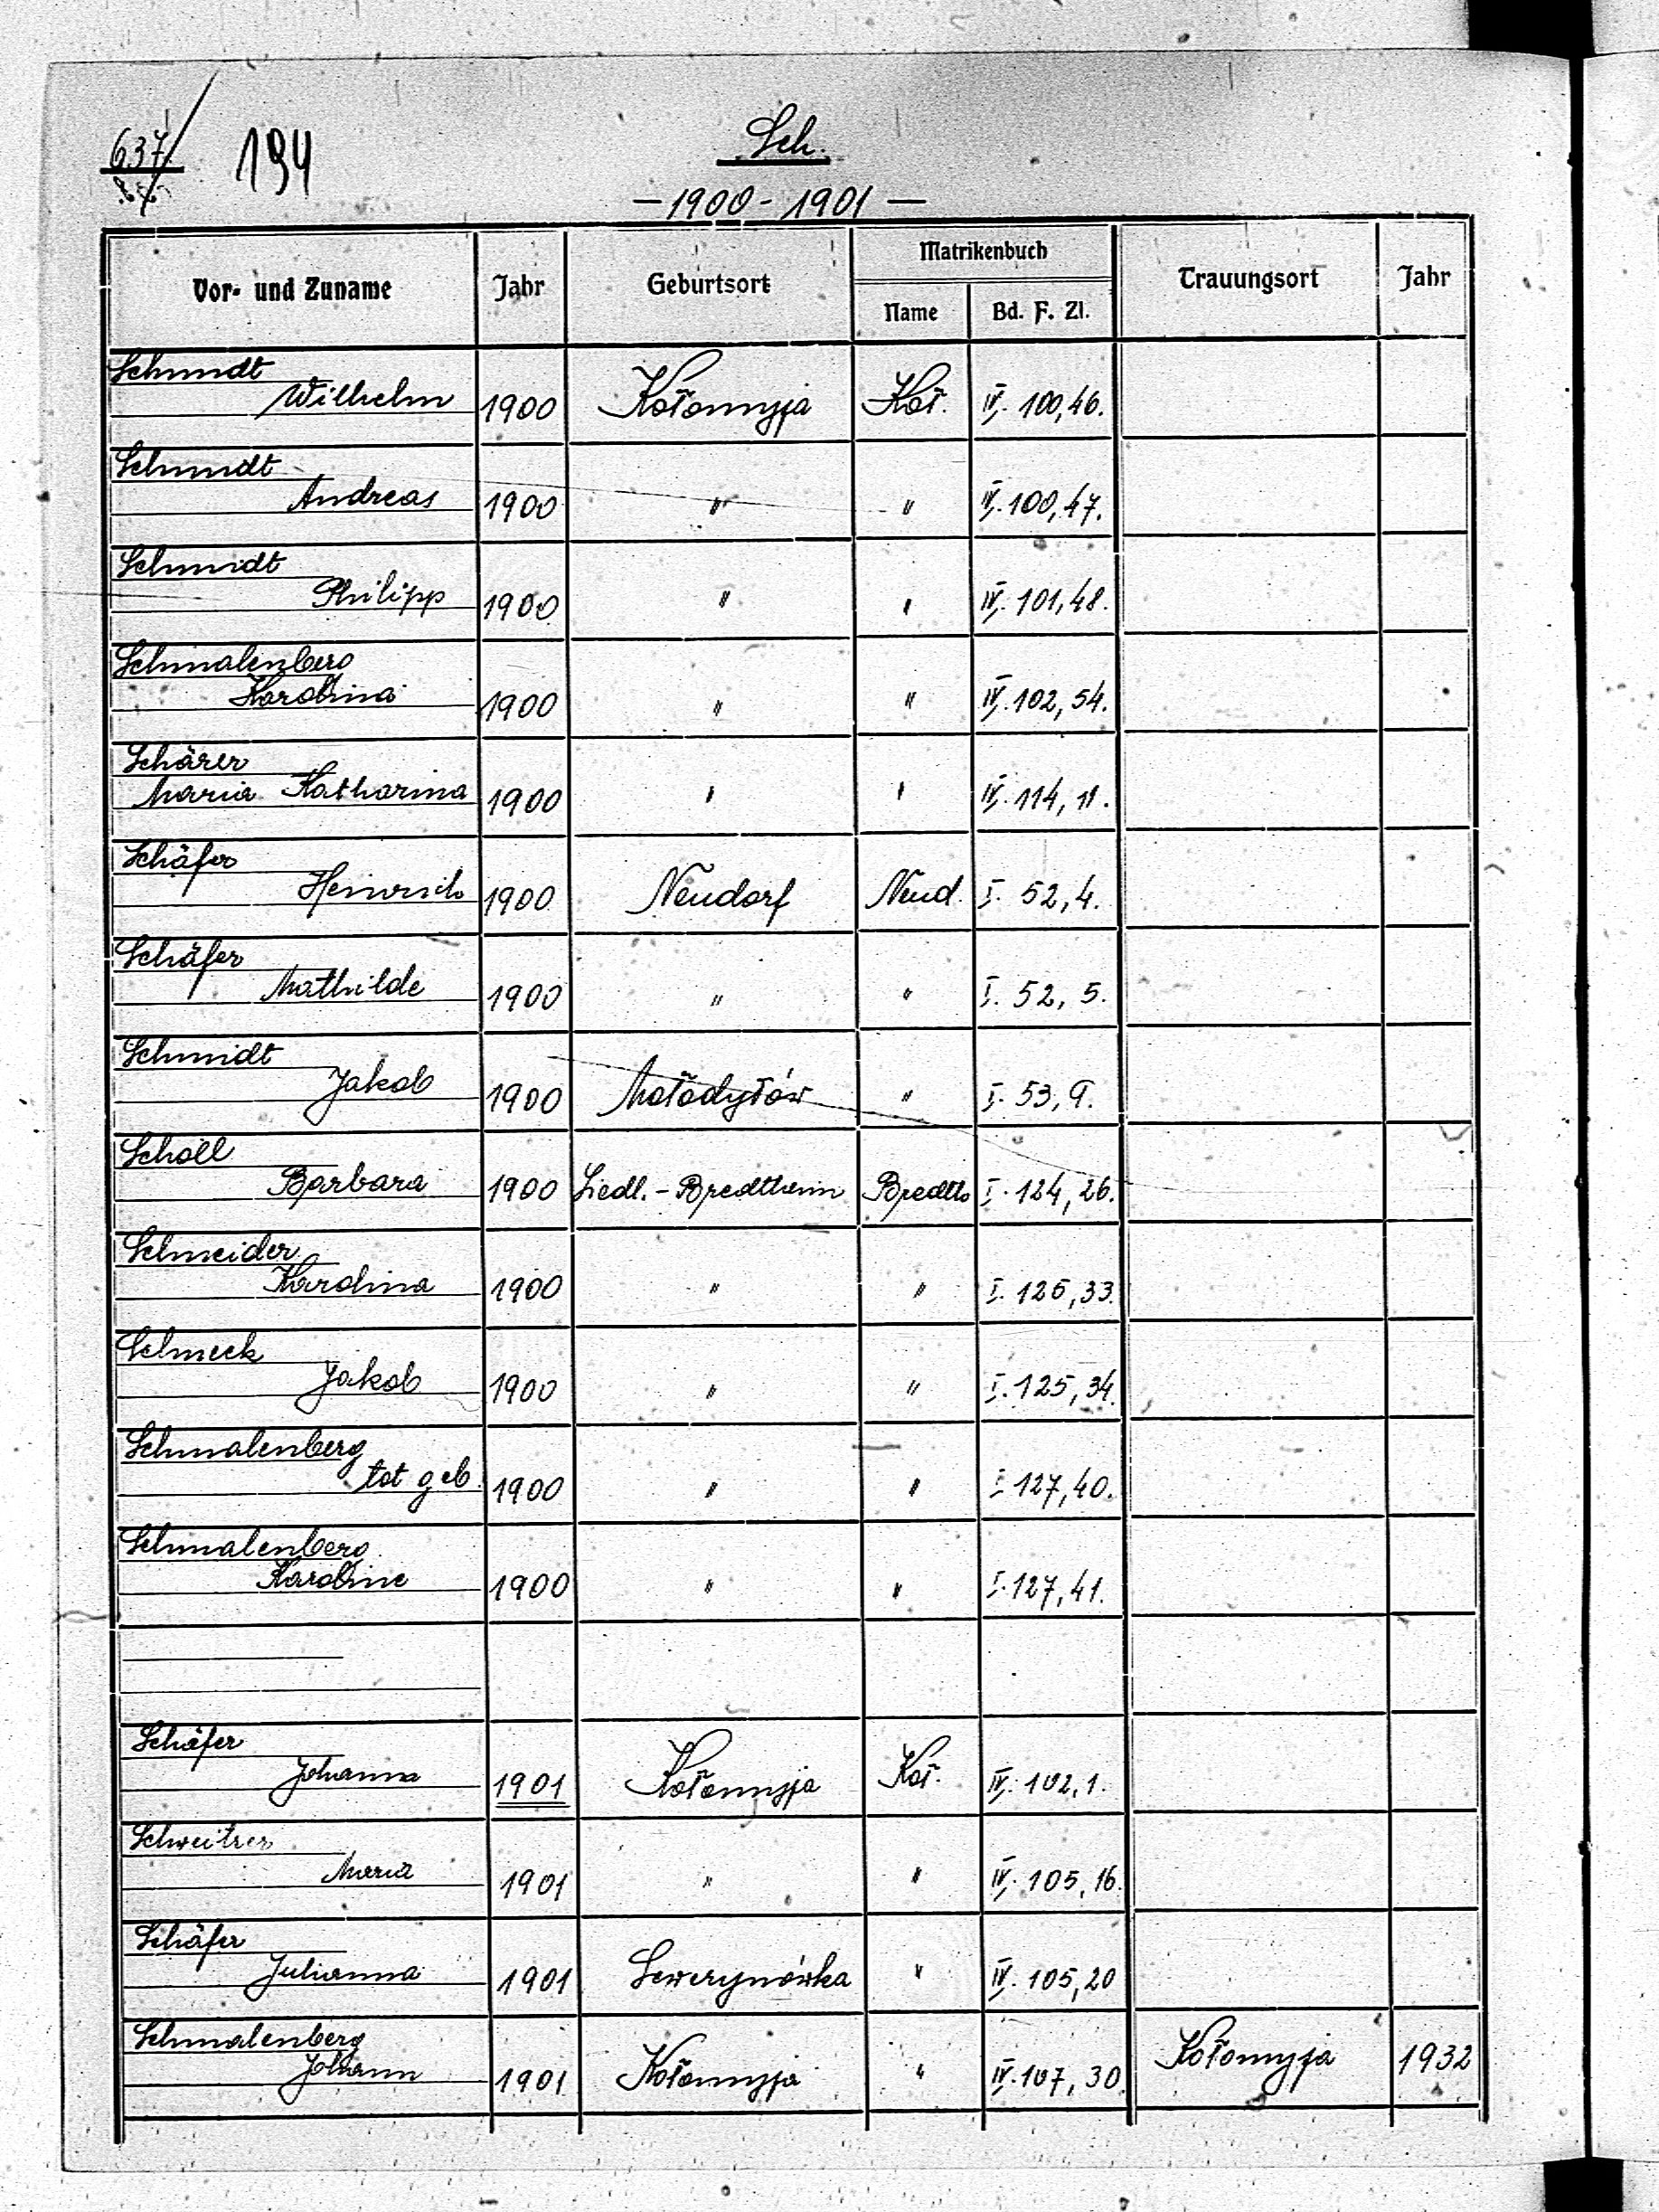 637 194 Sch.
— 1900 - 1901 —
Vor- und Zuname Jahr Geburtsort Matrikenbuch Name Bd. F. Zl. Trauungsort Jahr
Schmidt
Wilhelm 1900 Kołomyja Koł. IV. 100,46.
Schmidt
Andreas 1900 " " IV. 100,47.
Schmidt
Philipp 1900 " " IV. 101,48.
Schmalenberg
Karolina 1900 " " IV. 102,54.
Schärer
Maria Katharina 1900 " " IV. 114, 11.
Schäfer
Heinrich 1900 Neudorf Neud. I. 52,4.
Schäfer
Mathilde 1900 " " I. 52, 5.
Schmidt
Jakob 1900 Mołodyłów " I. 53, 9.
Scholl
Barbara 1900 Siedl. - Bredtheim Bredth I. 124,26.
Schneider
Karolina 1900 " " I. 125,33.
Schmeck
Jakob 1900 " " I. 125,34.
Schmalenberg
tot geb. 1900 " " I. 127,40.
Schmalenberg
Karoline 1900 " " I. 127,41.
Schäfer
Johanna 1901 Kołomyja Koł. IV. 102,1.
Schweitzer
Maria 1901 " " IV. 105,16.
Schäfer
Julianna 1901 Sewerynówka " IV. 105,20
Schmalenberg
Johann 1901 Kołomyja " IV. 107,30 Kołomyja 1932